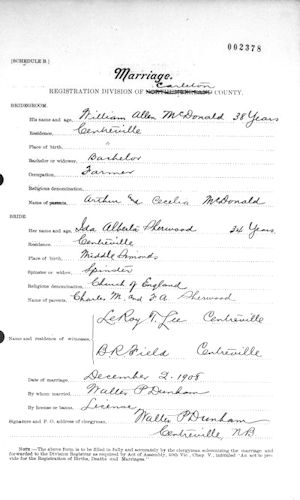 002378
[SCHEDULE B.]
Marriage.
Carleton
REGISTRATION DIVISION OF NORTHUMBERLAND COUNTY.
BRIDEGROOM.
His name and age, William Allen McDonald 38 Years
Residence, Centreville
Place of birth, "
Bachelor or widower, Bachelor
Occupation, Farmer
Religious denomination,
Name of parents, Arthur and Cecelia McDonald
BRIDE
Her name and age, Ida Alberta Sherwood 34 Years
Residence, Centreville
Place of birth, Middle Simonds
Spinster or widow, Spinster
Religious denomination, Church of England
Name of parents, Charles M. and F. A. Sherwood
LeRoy T. Lee Centreville
Name and residence of witnesses,
B R Field Centreville
Date of marriage, December 2. 1908
By whom married, Walter P Dunham
By license or banns, License
Signature and P. O. address of clergyman, Walter P Dunham
Centreville, N.B.
NOTE—The above form is to be filled in fully and accurately by the clergyman solemnizing the marriage and
forwarded to the Division Registrar as required by Act of Assembly, 50th Vic., Chap V., intituled "An act to pro-
vide for the Registration of Births, Deaths and Marriages."